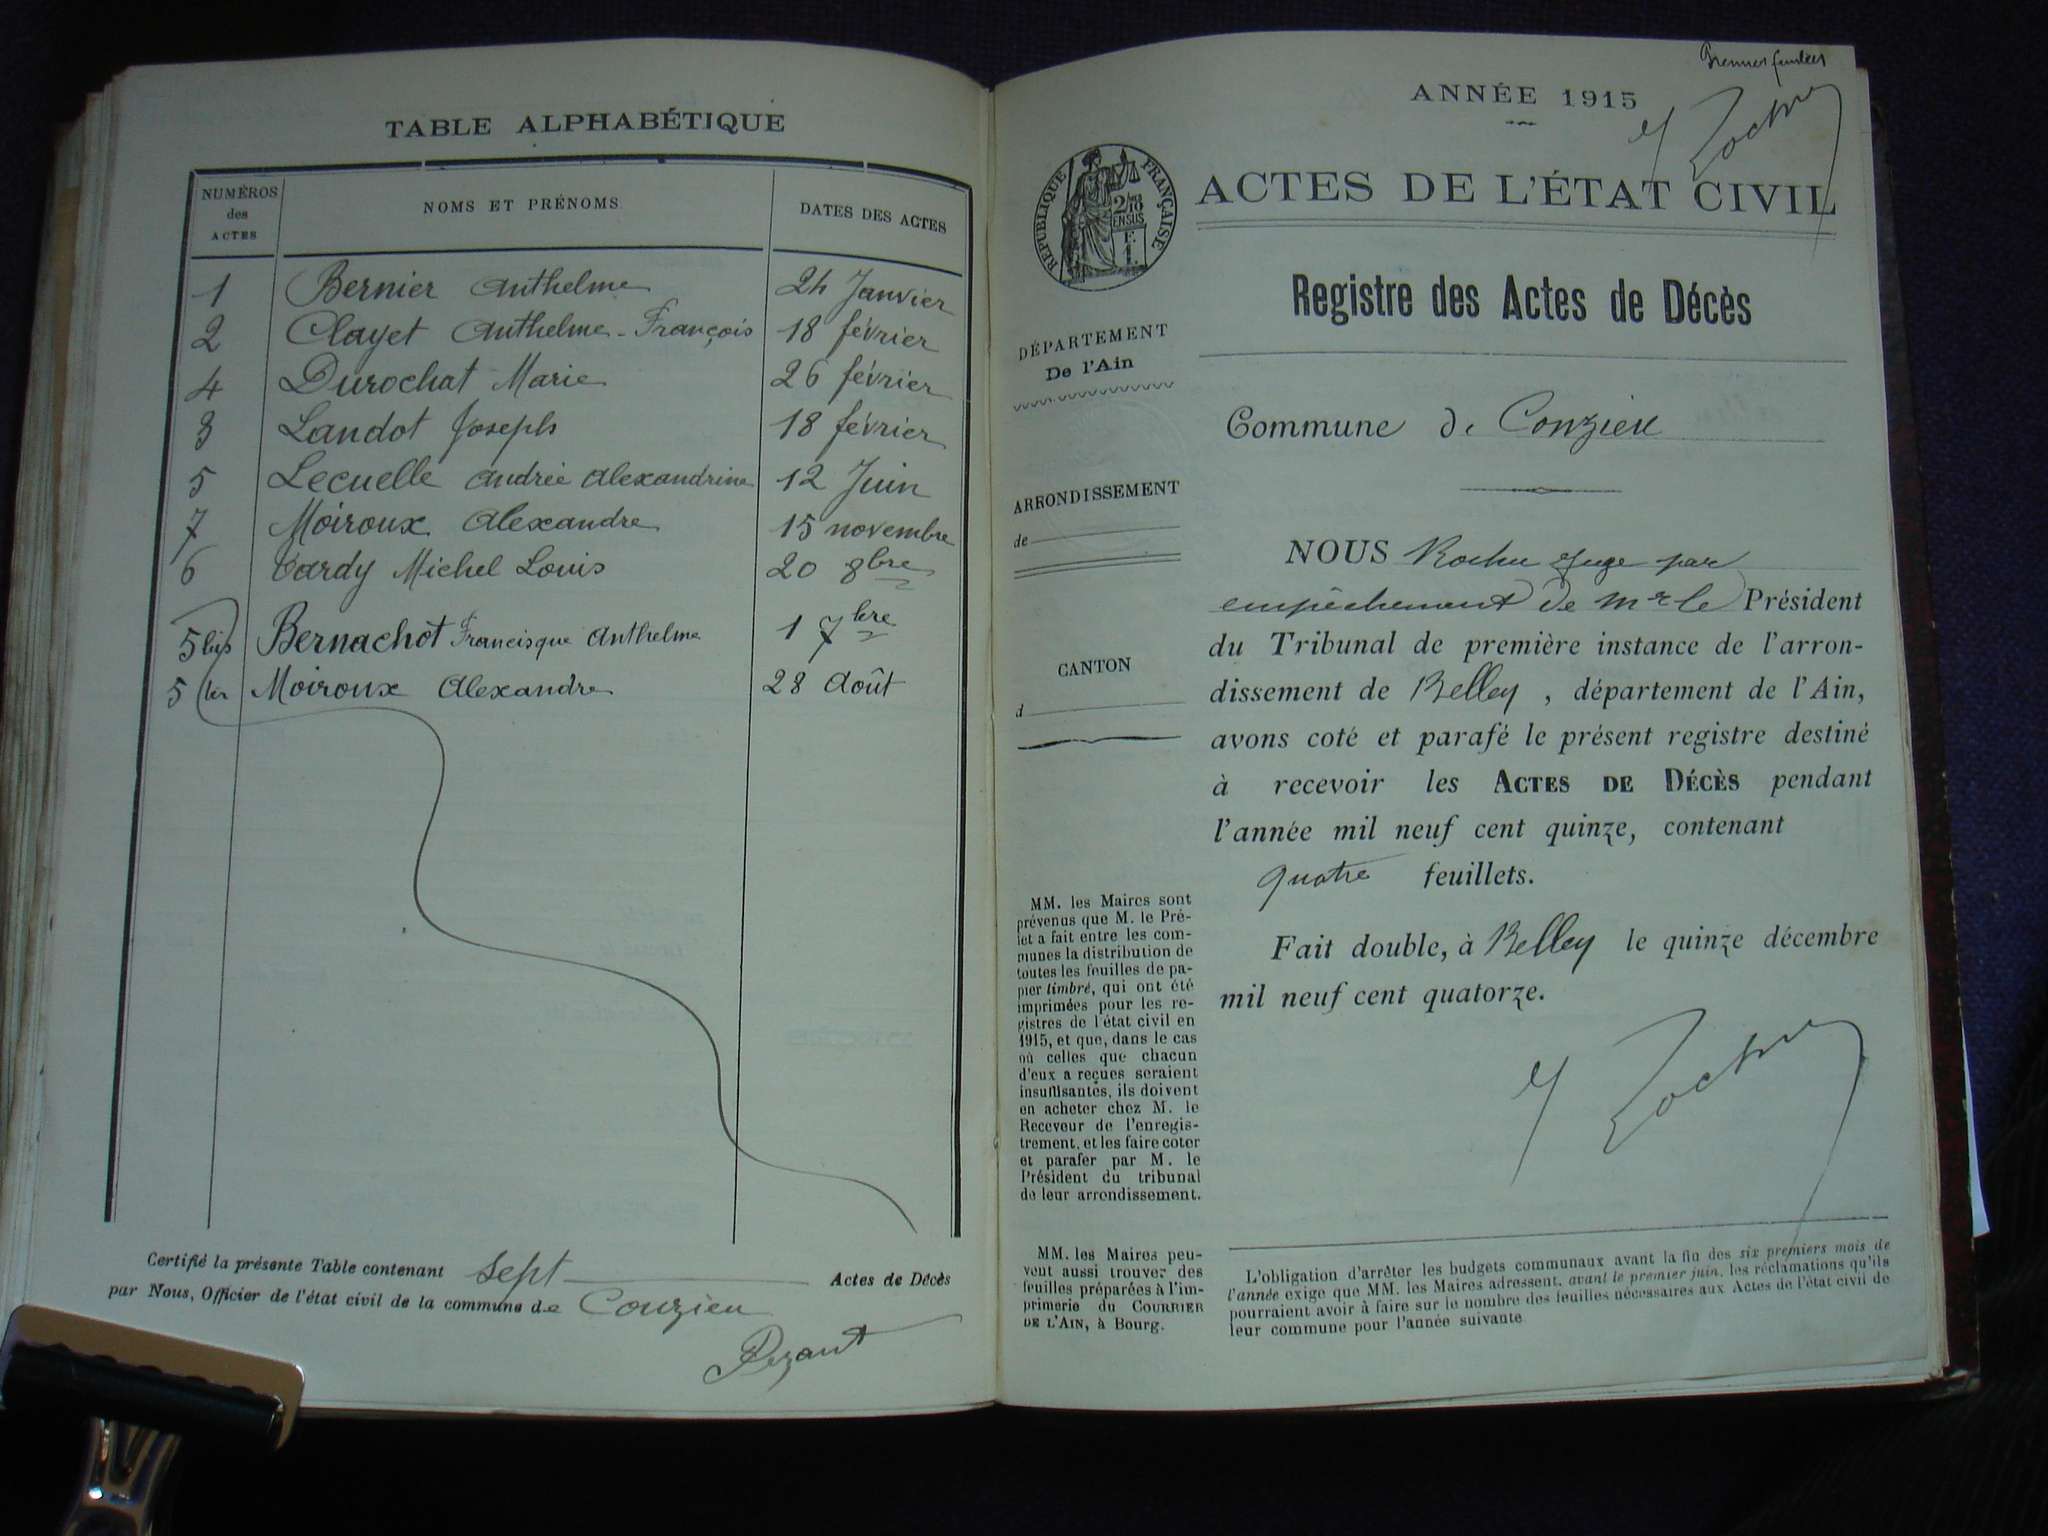 TABLE ALPHABÉTIQUE
NUMÉROS
des
ACTES
NOMS ET PRÉNOMS
DATES DES ACTES
1 Bernier Anthelme 24 Janvier
2 Clayet Anthelme-François 18 février
4 Durochat Marie 26 février
3 Landot Joseph 18 février
5 Lecuelle Andrée Alexandrine 12 Juin
7 Moiroux Alexandre 15 novembre
6 Tardy Michel Louis 20 8bre
5 bis Bernachot Francisque Anthelme 1 7bre
5 ter Moiroux Alexandre 28 Août
Certifié la présente Table contenant sept Actes de Décès
par Nous, Officier de l'état civil de la commune de Conzieu
Pezant
Premier feuillet
ANNÉE 1915
RÉPUBLIQUE FRANÇAISE
ACTES DE L'ÉTAT CIVIL
Registre des Actes de Décès
DÉPARTEMENT
De l'Ain
Commune de Conzieu
ARRONDISSEMENT
de
CANTON
d
NOUS Rochu Juge par
empêchement de Mr le Président
du Tribunal de première instance de l'arron-
dissement de Belley, département de l'Ain,
avons coté et parafé le présent registre destiné
à recevoir les ACTES DE DÉCÈS pendant
l'année mil neuf cent quinze, contenant
quatre feuillets.
Fait double, à Belley le quinze décembre
mil neuf cent quatorze.
MM. les Maires sont
prévenus que M. le Pré-
fet a fait entre les com-
munes la distribution de
toutes les feuilles de pa-
pier timbré, qui ont été
imprimées pour les re-
gistres de l'état civil en
1915, et que, dans le cas
où celles que chacun
d'eux a reçues seraient
insuffisantes, ils doivent
en acheter chez M. le
Receveur de l'enregis-
trement, et les faire coter
et parafer par M. le
Président du tribunal
de leur arrondissement.
MM. les Maires peu-
vent aussi trouver des
feuilles préparées à l'im-
primerie du COURRIER
DE L'AIN, à Bourg.
L'obligation d'arrêter les budgets communaux avant la fin des six premiers mois de
l'année exige que MM. les Maires adressent, avant le premier juin, les réclamations qu'ils
pourraient avoir à faire sur le nombre des feuilles nécessaires aux Actes de l'état civil de
leur commune pour l'année suivante